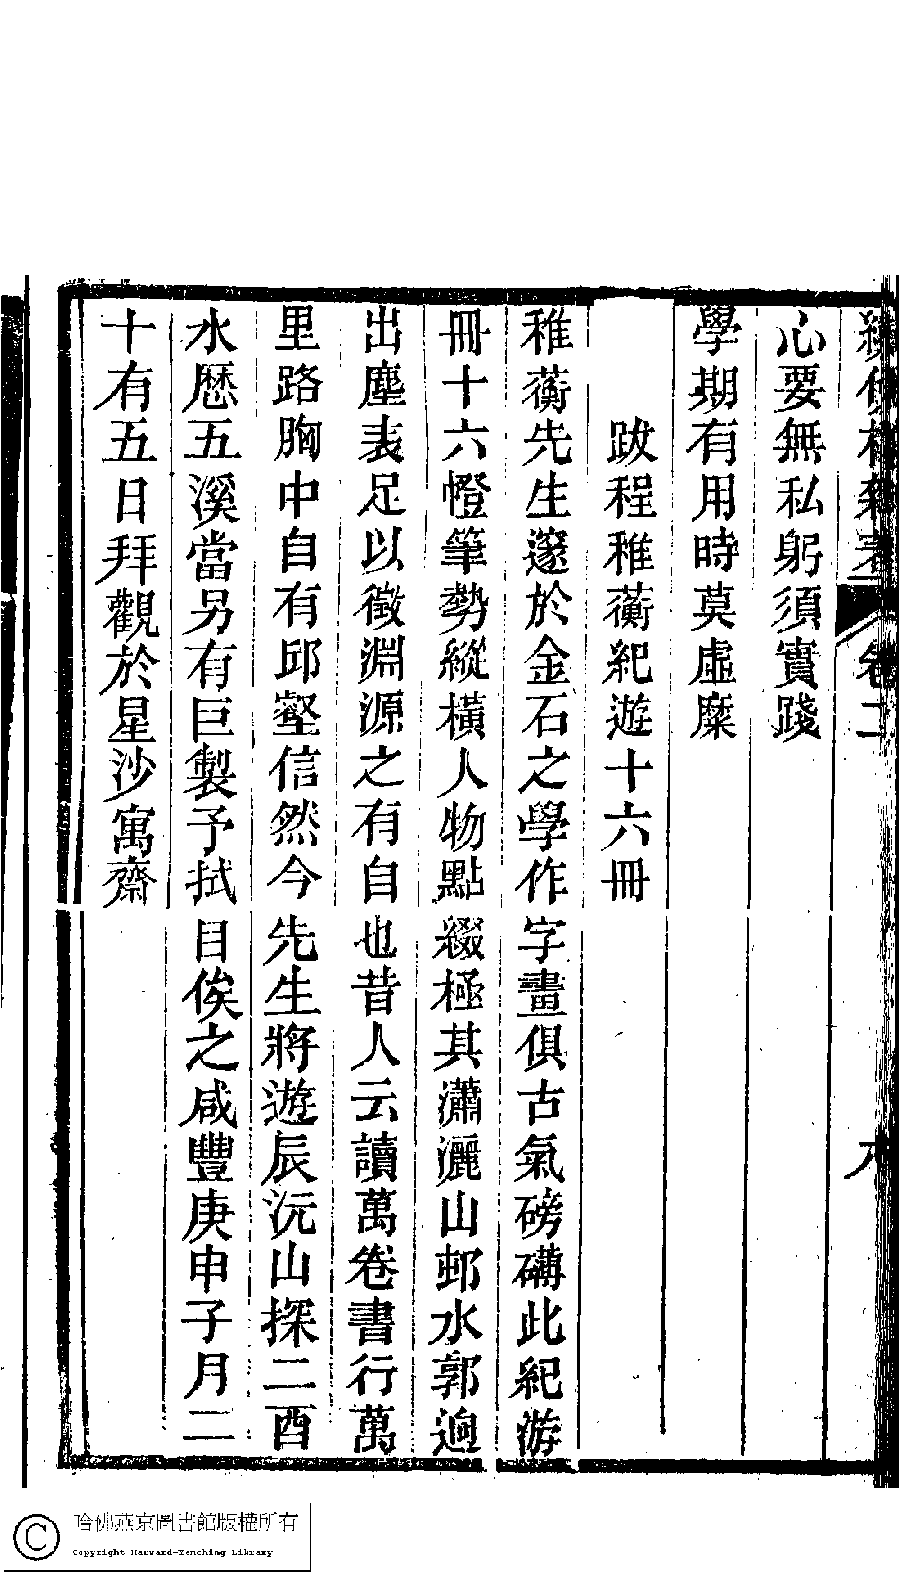 卷二
心要無私躬須實踐
學期有用時莫虛糜
跋程稚蘅紀遊十六冊
稚蘅先生邃於金石之學作字畫俱古氣磅礴此紀游
冊十六幀筆勢縱橫人物點綴極其瀟灑山邨水郭逈
出塵表足以徵淵源之有自也昔人云讀萬卷書行萬
里路胸中自有邱壑信然今先生將遊辰沅山探二酉
水歷五溪當另有巨製予拭目俟之咸豐庚申子月二
十有五日拜觀於星沙寓齋
哈佛燕京圖書館版權所有
Copyright Harvard-Yenching Library